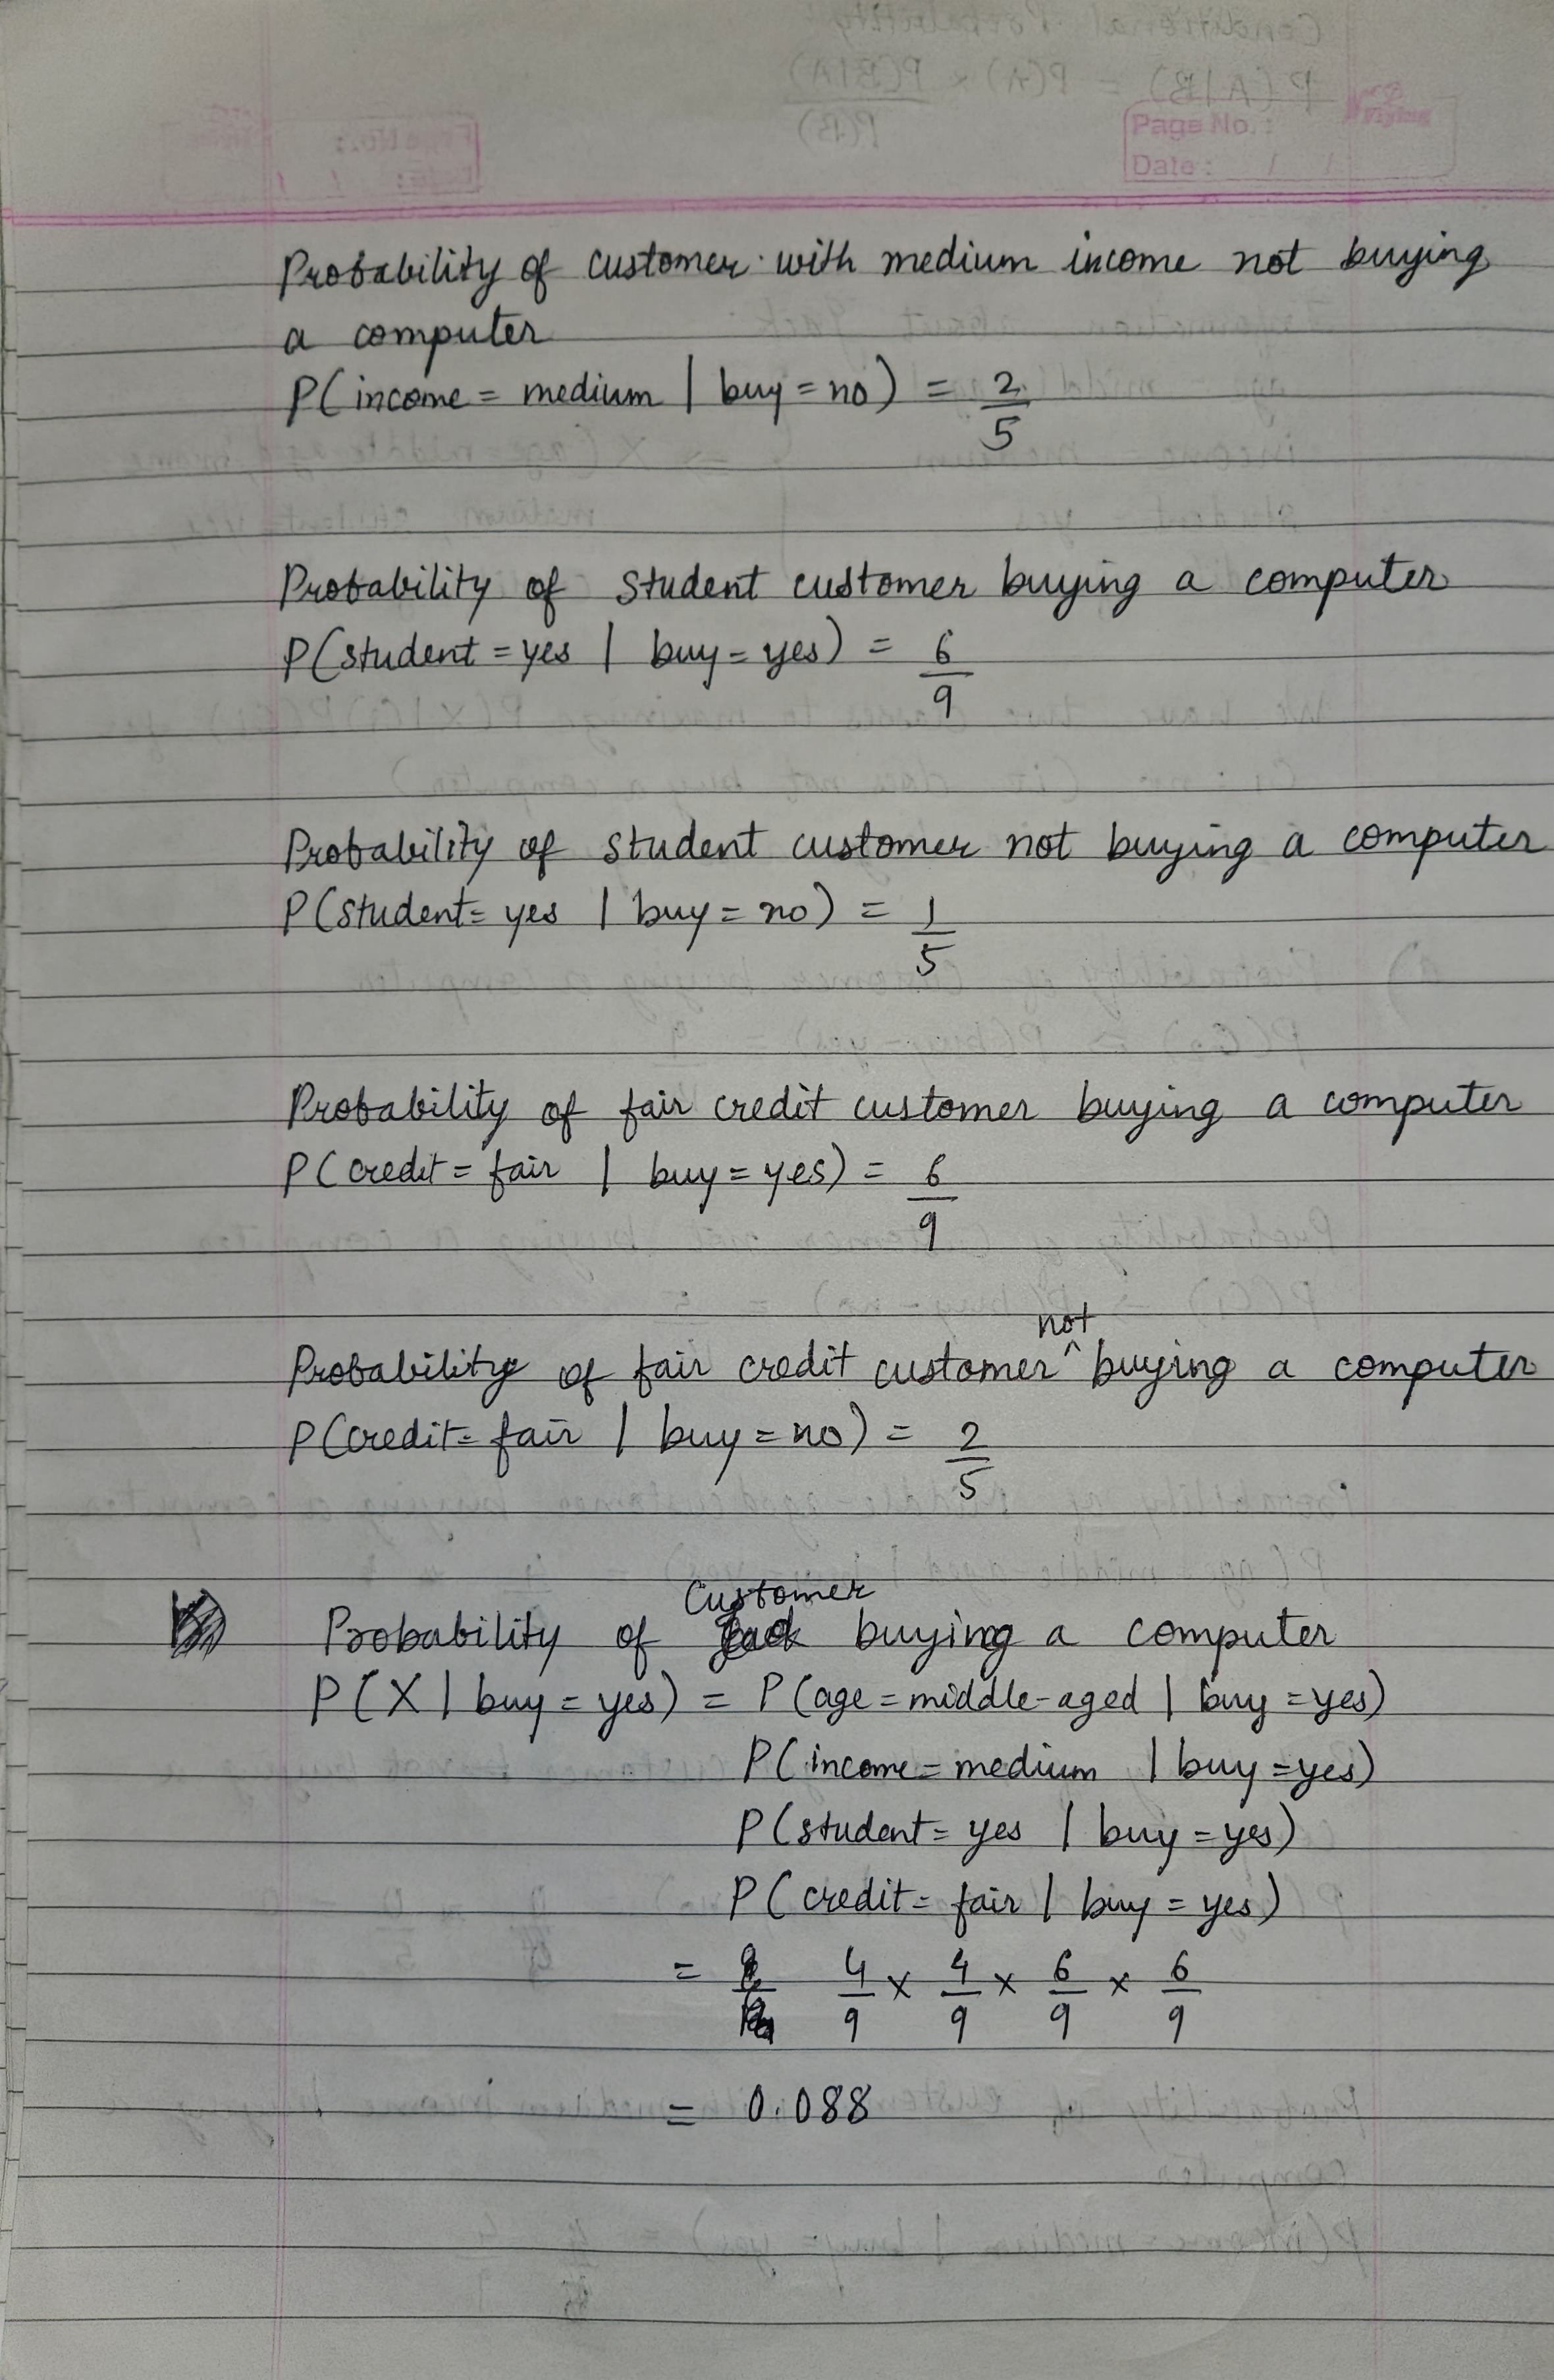 Conditional Probability
P(A|B) = P(A) × P(B|A)
P(B)
Page No.:
Date: / /
Probability of customer with medium income not buying
a computer
P(income = medium | buy = no) = 2/5
Probability of student customer buying a computer
P(student = yes | buy = yes) = 6/9
Probability of student customer not buying a computer
P(student = yes | buy = no) = 1/5
Probability of fair credit customer buying a computer
P(credit = fair | buy = yes) = 6/9
not
Probability of fair credit customer ^ buying a computer
P(credit = fair | buy = no) = 2/5
Customer
Probability of buying a computer
P(X | buy = yes) = P(age = middle-aged | buy = yes)
P(income = medium | buy = yes)
P(student = yes | buy = yes)
P(credit = fair | buy = yes)
= 4/9 × 4/9 × 6/9 × 6/9
= 0.088